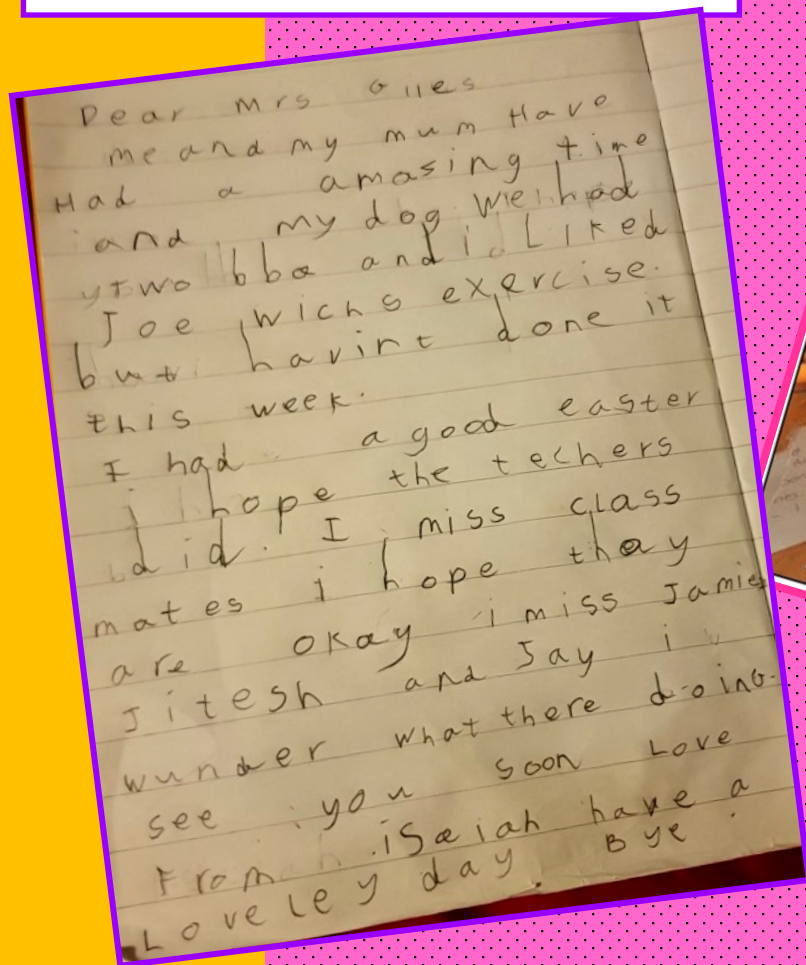 Dear Mrs Giles
me and my mum Have
Had a amasing time
and my dog. We had
two bbq and i Liked
Joe wichs exercise.
but havint done it
this week.
I had a good easter
i hope the techers
did. I miss class
mates i hope thay
are okay i miss Jamie
Jitesh and Jay i
wunder what there doing.
see you soon Love
From isaiah have a
Loveley day. Bye.